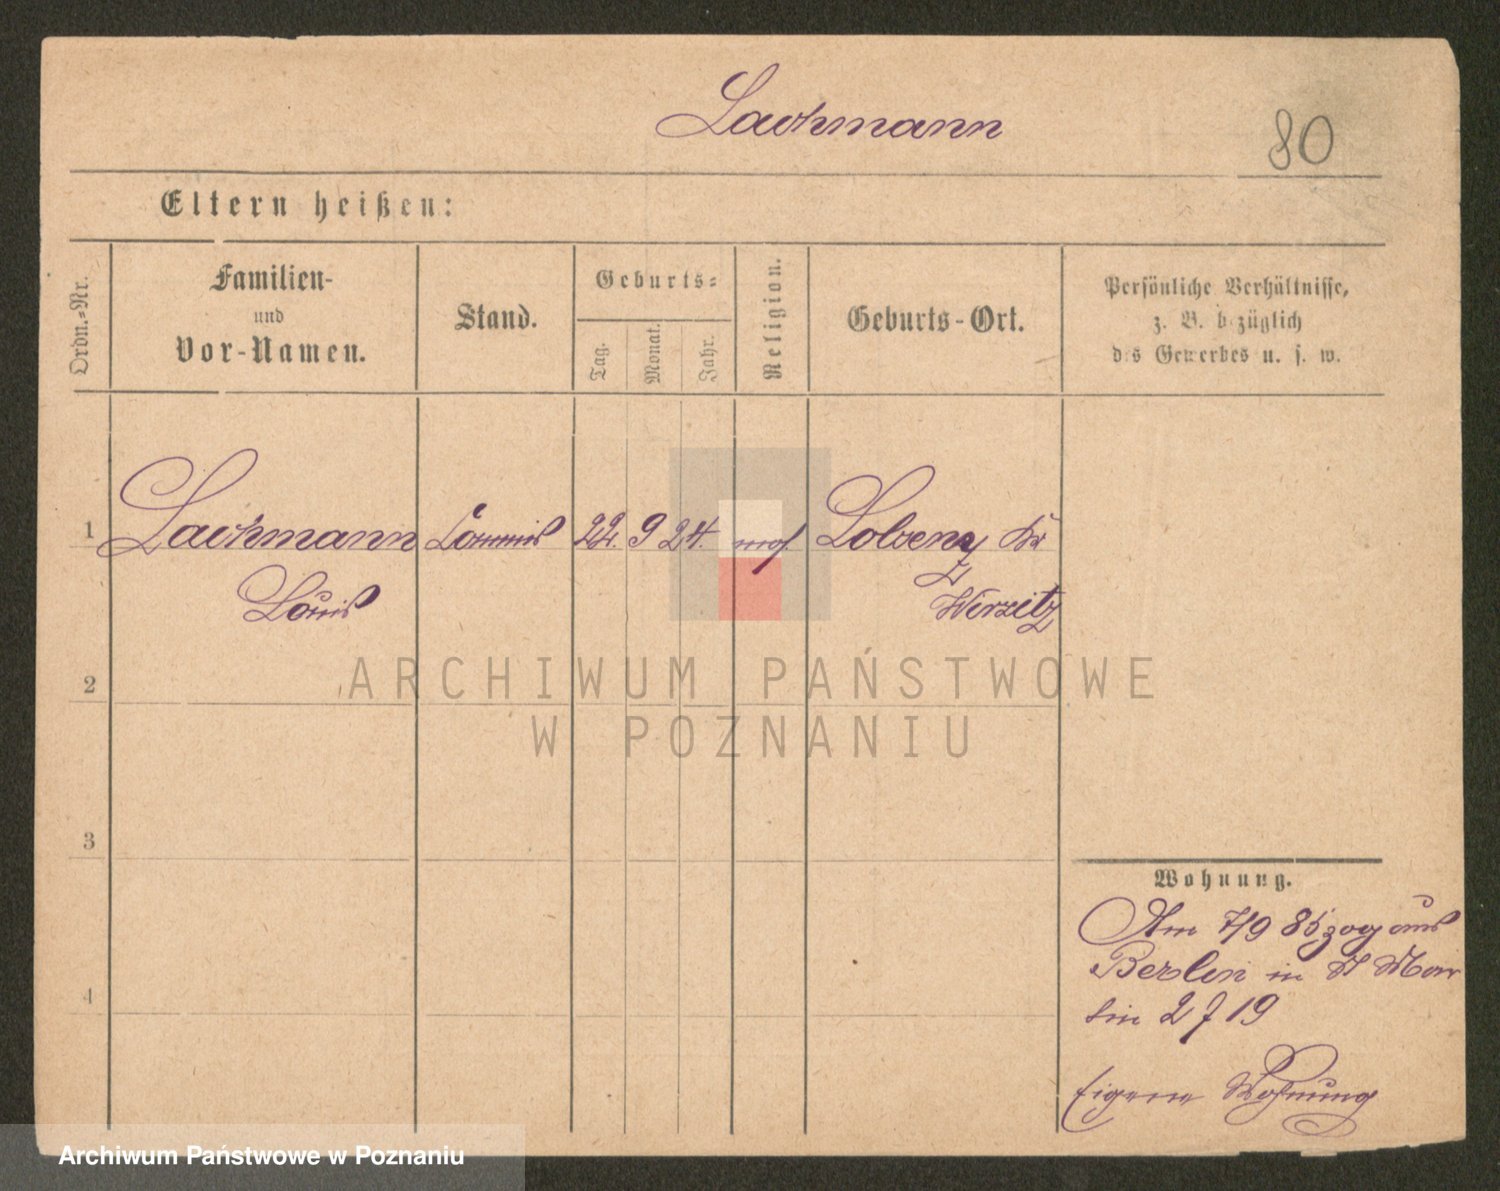 Lachmann
80
Eltern heißen:
Ordn.-Nr.
Familien-
und
Vor-Namen.
Stand.
Geburts-
Tag.
Monat.
Jahr.
Religion.
Geburts-Ort.
Persönliche Verhältnisse,
z. B. bezüglich
des Gewerbes u. s. w.
1
Lachmann Commis 22. 9 24. mos. Lobsenz Kr
Louis Wirsitz
ARCHIWUM PAŃSTWOWE
W POZNANIU
2
3
4
Wohnung.
Am 7/9 85 zog aus
Berlin in St Mar
tin 27 19
Eigene Wohnung
Archiwum Państwowe w Poznaniu